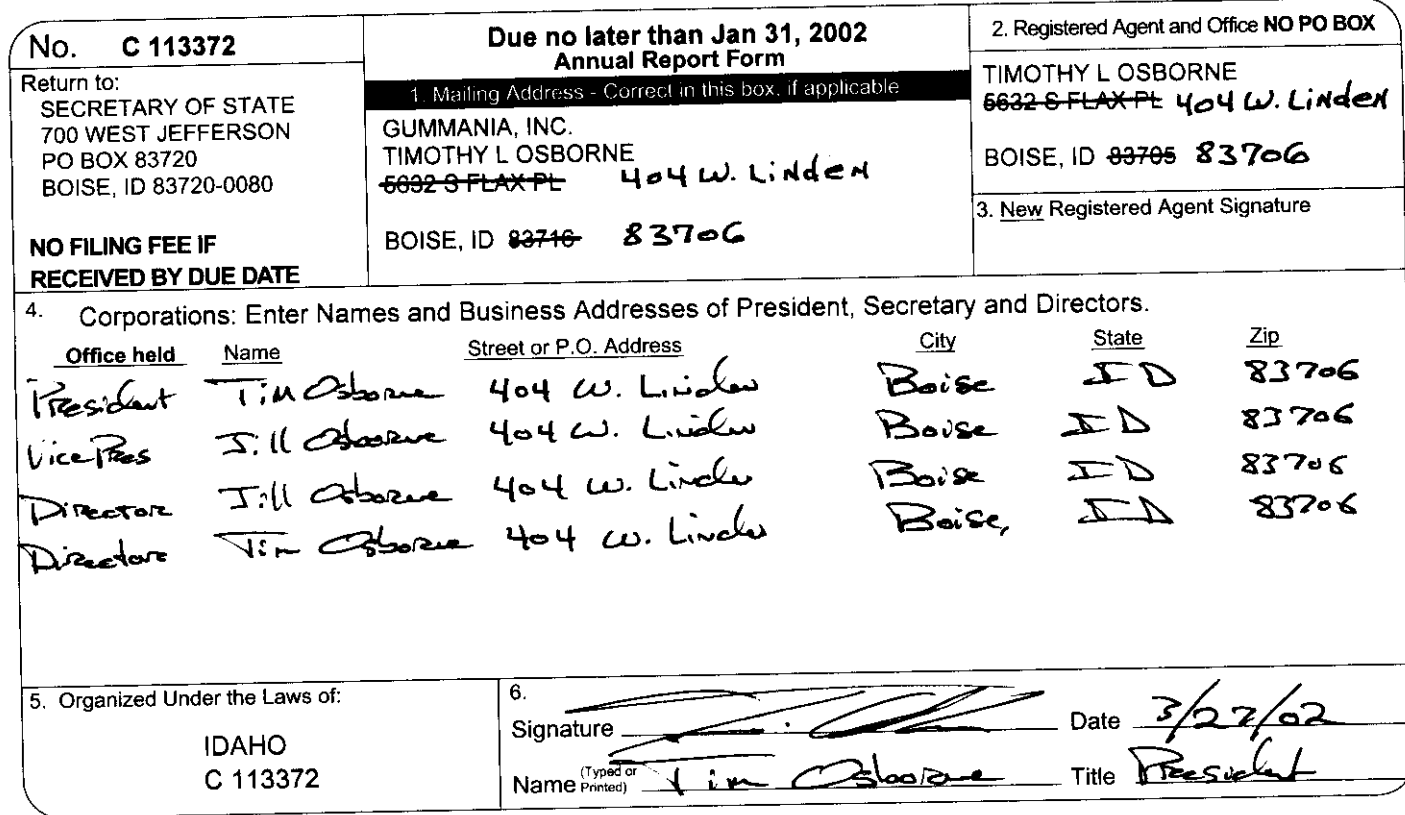 No. C 113372
Return to:
SECRETARY OF STATE
700 WEST JEFFERSON
PO BOX 83720
BOISE, ID 83720-0080
NO FILING FEE IF
RECEIVED BY DUE DATE
Due no later than Jan 31, 2002
Annual Report Form
1. Mailing Address - Correct in this box, if applicable
GUMMANIA, INC.
TIMOTHY L OSBORNE
5632 S FLAX PL 404 W. Linden
BOISE, ID 83716 83706
2. Registered Agent and Office NO PO BOX
TIMOTHY L OSBORNE
5632 S FLAX PL 404 W. Linden
BOISE, ID 83705 83706
3. New Registered Agent Signature
4. Corporations: Enter Names and Business Addresses of President, Secretary and Directors.
Office held Name Street or P.O. Address City State Zip
President Tim Osborne 404 W. Linden Boise ID 83706
Vice Pres Jill Osborne 404 W. Linden Boise ID 83706
Director Jill Osborne 404 W. Linden Boise ID 83706
Director Tim Osborne 404 W. Linden Boise, ID 83706
5. Organized Under the Laws of:
IDAHO
C 113372
6.
Signature Date 3/27/02
Name (Typed or Printed) Tim Osborne Title President